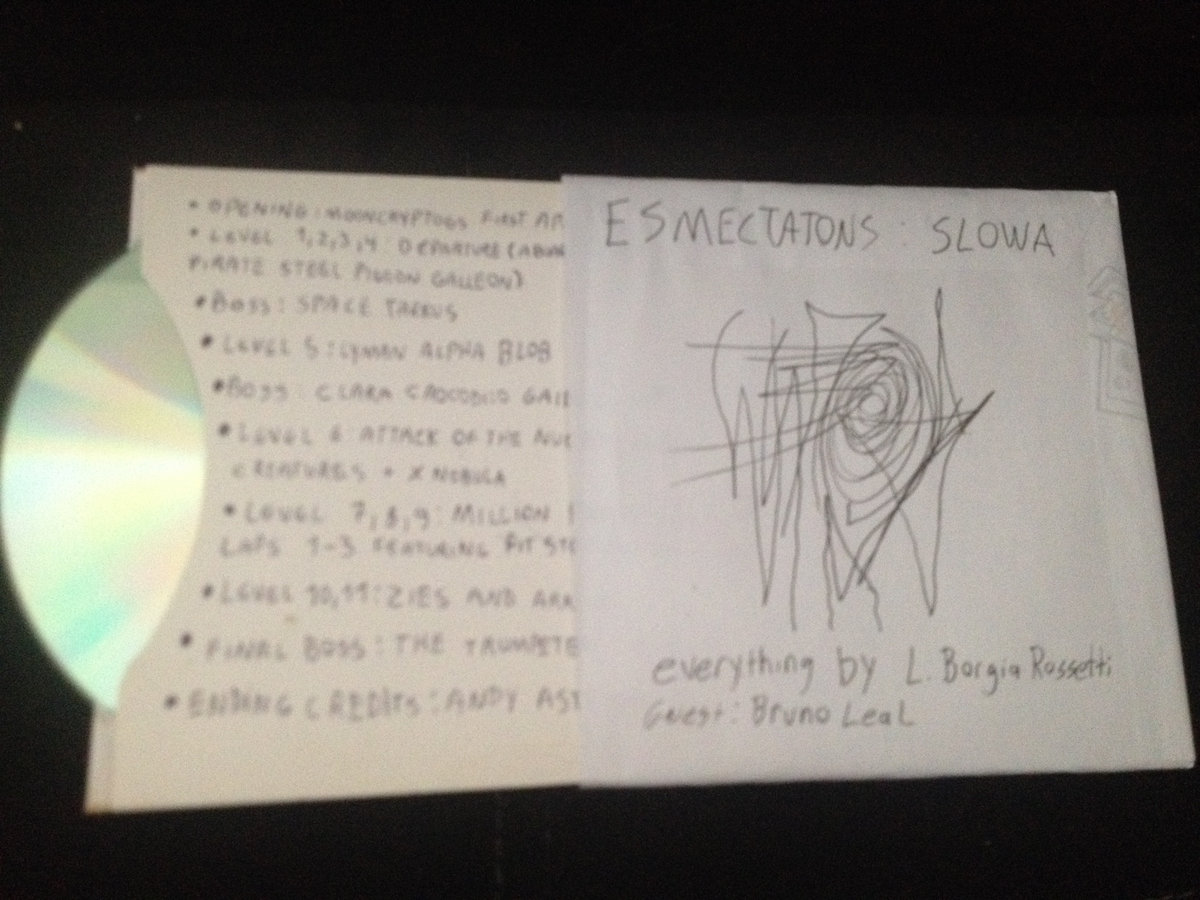 • OPENING: MOONCRYPTOGS FIRST
• LEVEL 1,2,3,4: DEPARTURE
PIRATE STEEL PIGEON GALLEON)
• BOSS: SPACE
• LEVEL 5: LYMAN ALPHA BLOB
• BOSS: CLARA CROCODILO
• LEVEL 6: ATTACK OF THE
CREATURES + X NEBULA
• LEVEL 7,8,9: MILLION
LAPS 1-3 FEATURING
• LEVEL 10,11: ZIES AND
• FINAL BOSS: THE
• ENDING CREDITS: ANDY
ESMECTATONS: SLOWA
everything by L. Borgia Rossetti
Guest: Bruno Leal